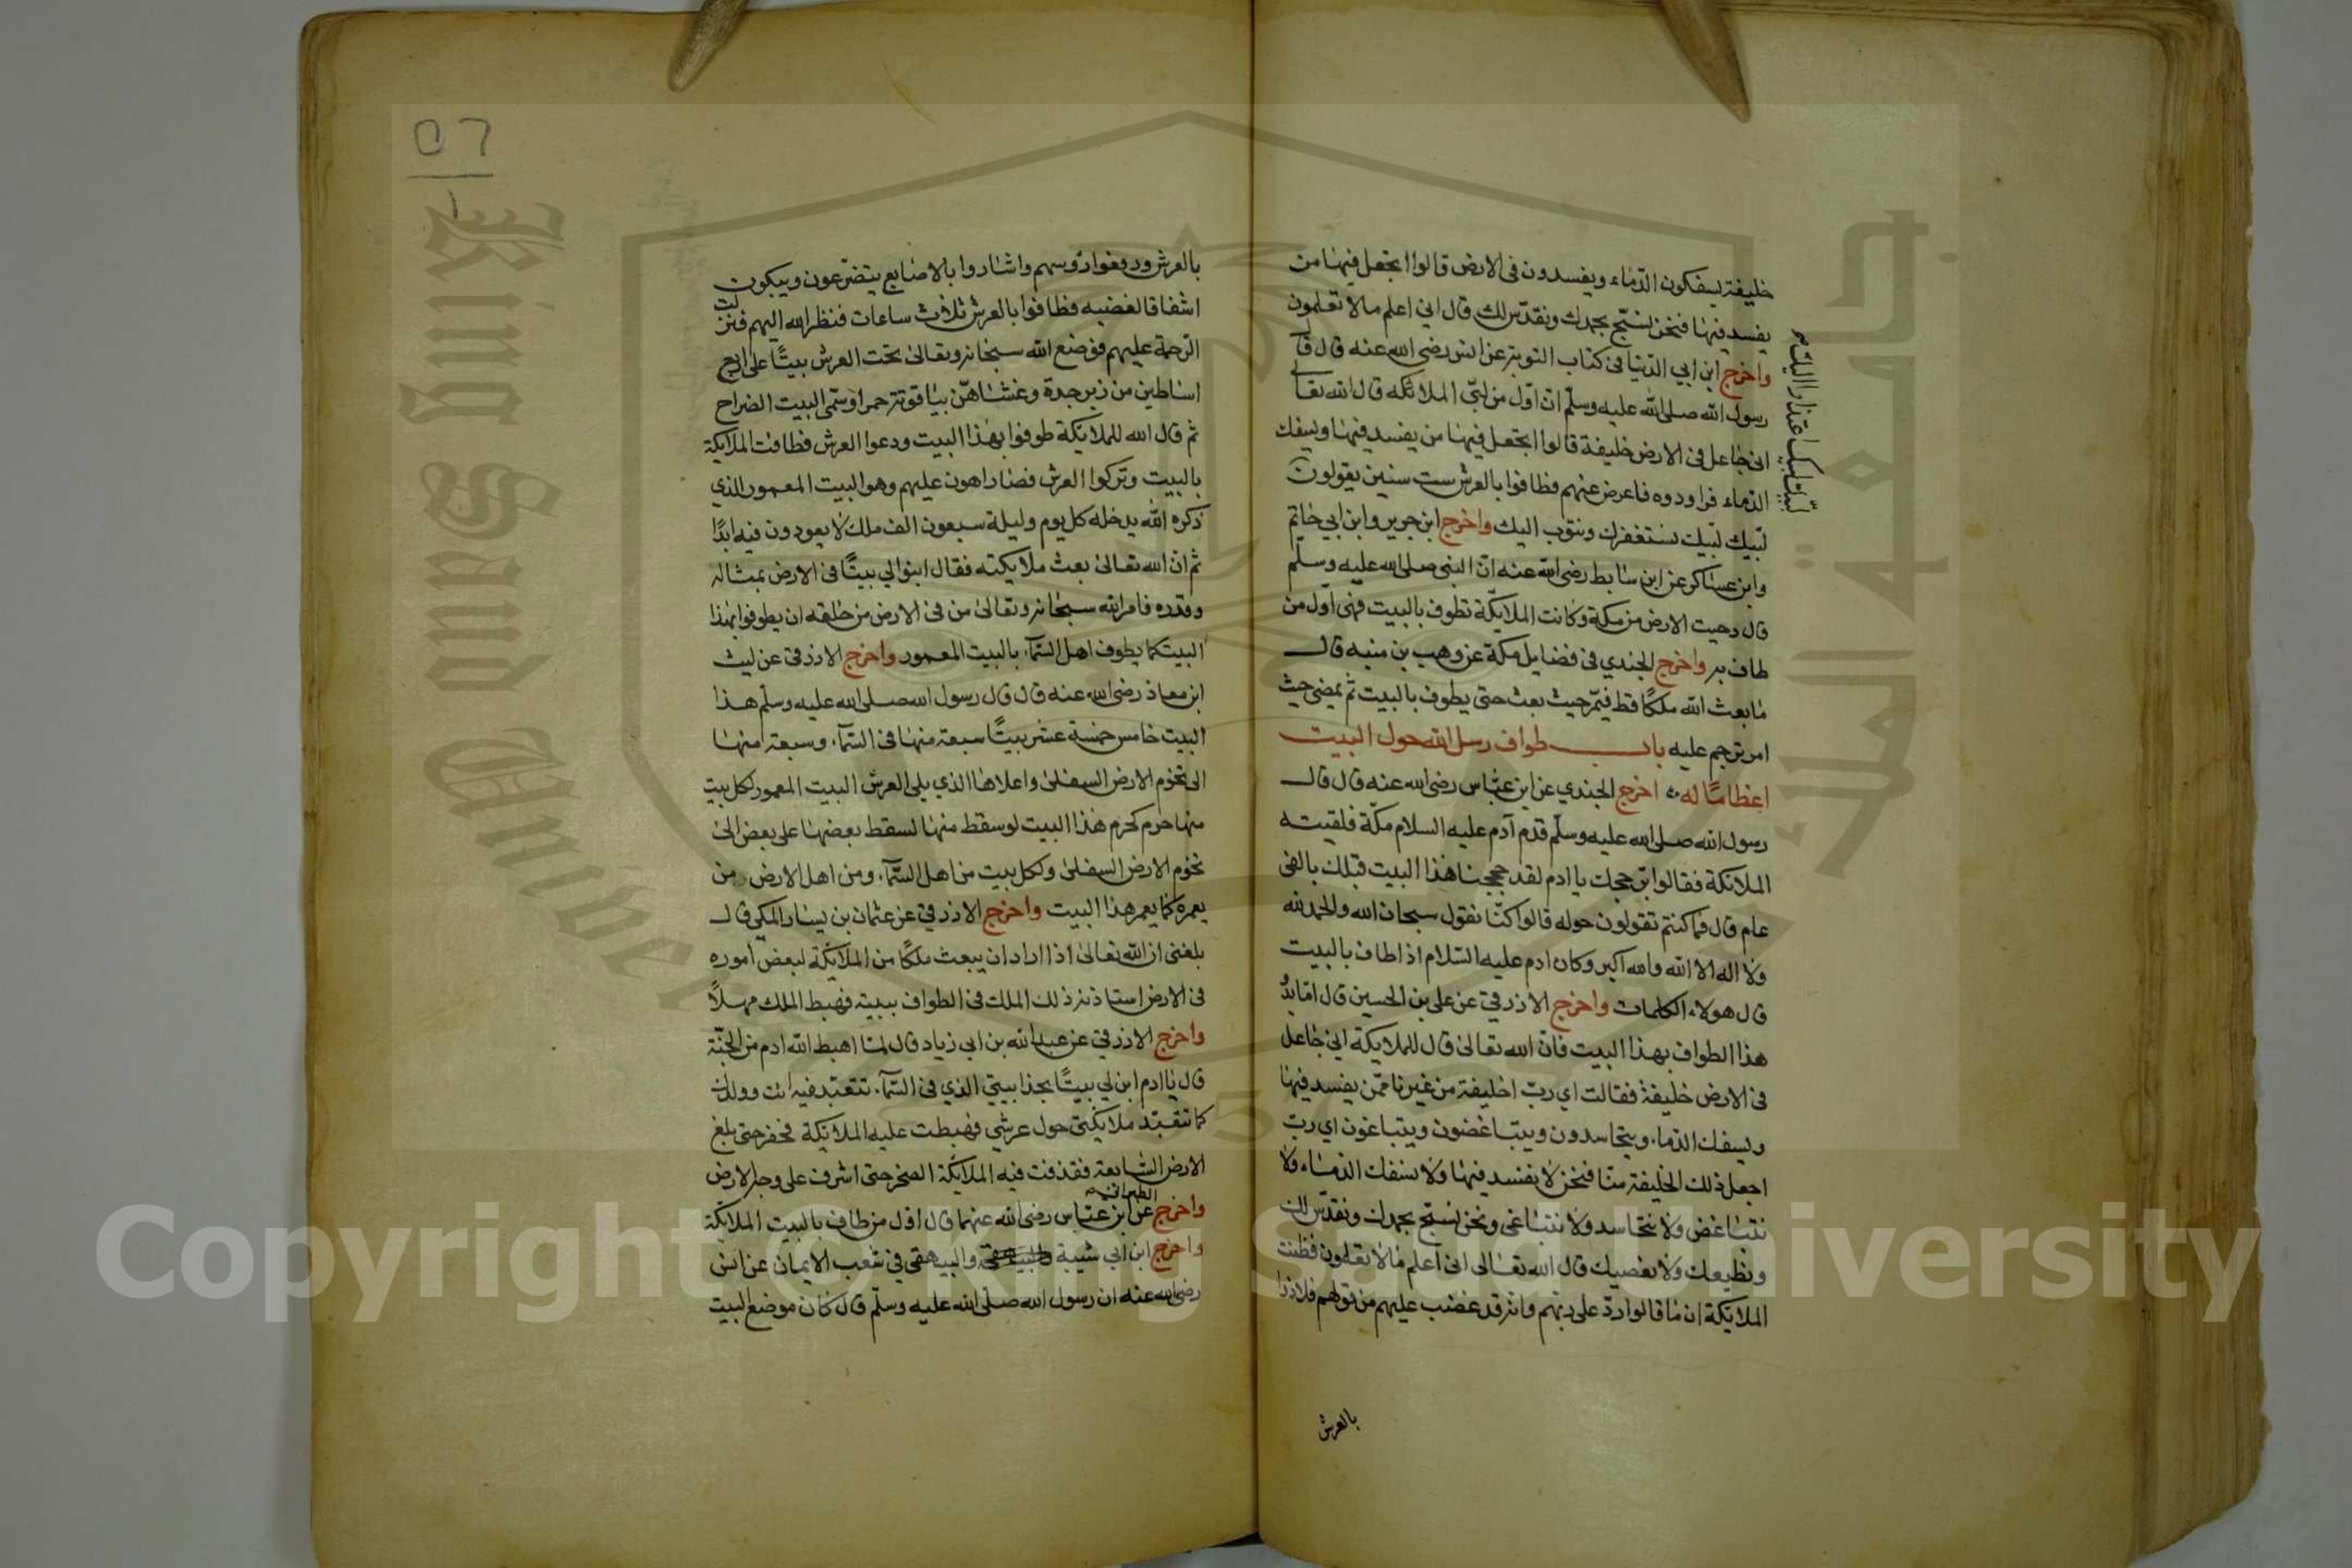 خليفة يسفكون الدماء ويفسدون فى الارض قالوا اتجعل فيها من
يفسد فيها فنحن نسبّح بحمدك ونقدّس لك قال اني اعلم مالا تعلمون
واخرج ابن ابي الدنيا فى كتاب التوبة عن انس رضى الله عنه قال قا
رسول الله صلى الله عليه وسلّم انّ اوّل من لبّى الملائكه قال الله تعا
انى جاعل فى الارض خليفة قالوا اتجعل فيها من يفسد فيها ويسفك
الدماء فراودوه فاعرض عنهم فطافوا بالعرش ست سنين يقولون
لبّيك لبّيك نستغفرك ونتوب اليك واخرج ابن جرير وابن ابي حاتم
وابن عساكر عن ابن سابط رضى الله عنه انّ النبى صلى الله عليه وسلّم
قال دحيت الارض من مكة وكانت الملائكة تطوف بالبيت فهى اوّل من
طاف به واخرج الجندي فى فضايل مكة عن وهب بن منبه قال
مابعث الله ملكًا قط فيمّر حيث بعث حتى يطوف بالبيت ثم يمضى حيث
امر ترجم عليه باب طواف رسل الله حول البيت
اعظامًا له اخرج الجندي عن ابن عبّاس رضى الله عنه قال قال
رسول الله صلى الله عليه وسلّم قدم آدم عليه السلام مكّة فلقيته
الملائكة فقالوا برّ حجك يا ادم لقد حججنا هذا البيت قبلك بالفى
عام قال فما كنتم تقولون حوله قالوا كنّا نقول سبحان الله والحمد لله
ولا اله الا الله والله اكبر وكان ادم عليه السّلام اذا طاف بالبيت
قال هولاء الكلمات واخرج الازرقي عن على بن الحسين قال امّا بدُ
هذا الطواف بهذا البيت فانّ الله تعالىٰ قال للملايكة اني جاعل
فى الارض خليفة فقالت اي ربّ اخليفة من غيرنا ممّن يفسد فيها
ويسفك الدما، ويتحاسدون ويتباغضون ويتباغون اي ربّ
اجعل ذلك الخليفة منّا فنحن لا نفسد فيها ولا نسفك الدماء ولا
نتباغض ولا نتحاسد ولا نتباغى ونحن نسبّح بحمدك ونقدّس لك
ونطيعك ولا نعصيك قال الله تعالى انى اعلم مالا تعلمون فظنت
الملايكة ان ما قالوا ردّ على ربّهم وانه قد غضب عليهم من قولهم فلاذوا
بالعرش
بالعرش ورفعوا رؤسهم واشاروا بالاصابع يتضرّعون ويبكون
اشفاقا لغضبه فطافوا بالعرش ثلاث ساعات فنظر الله اليهم فنزلت
الرحمة عليهم فوضع الله سبحانه وتعالىٰ تحت العرش بيتًا على اربع
اساطين من زبرجدة وغشاهنّ بياقوتة حمرا وسمّى البيت الضراح
ثم قال الله للملايكة طوفوا بهذا البيت ودعوا العرش فطافت الملايكة
بالبيت وتركوا العرش فصار اهون عليهم وهو البيت المعمور الذي
ذكره الله يدخله كل يوم وليلة سبعون الف ملك لا يعودون فيه ابدًا
ثم انّ الله تعالىٰ بعث ملايكته فقال ابنوا لي بيتًا فى الارض بمثاله
وقدره فامر الله سبحانه وتعالىٰ من فى الارض من خلقه ان يطوفوا بهذا
البيت كما يطوف اهل السّمآء بالبيت المعمور واخرج الازرقى عن ليث
ابن معاذ رضى الله عنه قال قال رسول الله صلى الله عليه وسلّم هذا
البيت خامس خمسة عشر بيتًا سبعة منها فى السّمآء وسبعة منها
الى تخوم الارض السفلىٰ واعلاها الذي يلى العرش البيت المعمور لكل بيت
منها حرم كحرم هذا البيت لو سقط منها لسقط بعضها على بعض الىٰ
تخوم الارض السفلىٰ ولكل بيت من اهل السّمآء ومن اهل الارض من
يعمره كما يعمر هذا البيت واخرج الازرقي عن عثمان بن يسار المكى قال
بلغنى ان الله تعالىٰ اذا اراد ان يبعث ملكًا من الملائكة لبعض اموره
فى الارض استاذنه ذلك الملك فى الطواف ببيته فهبط الملك مهلّلًا
واخرج الازرقي عن عبد الله بن ابي زياد قال لمّا اهبط الله ادم من الجنّة
قال يا ادم ابن لي بيتًا بحذا بيتي الذي فى السّمآء تتعبّد فيه انت وولدك
كما تتعبّد ملايكتى حول عرشي فهبطت عليه الملائكة فحفر حتى بلغ
الارض السّابعة فقذفت فيه الملائكة الصخر حتى اشرف على وجه الارض
واخرج الطبرانى عن ابن عبّاس رضى الله عنهما قال اوّل من طاف بالبيت الملايكة
واخرج ابن ابي شيبة والبيهقى في شعب الايمان عن انس
رضى الله عنه ان رسول الله صلى الله عليه وسلّم قال كان موضع البيت
جامعة الملك سعود
King Saud University
Copyright © King Saud University